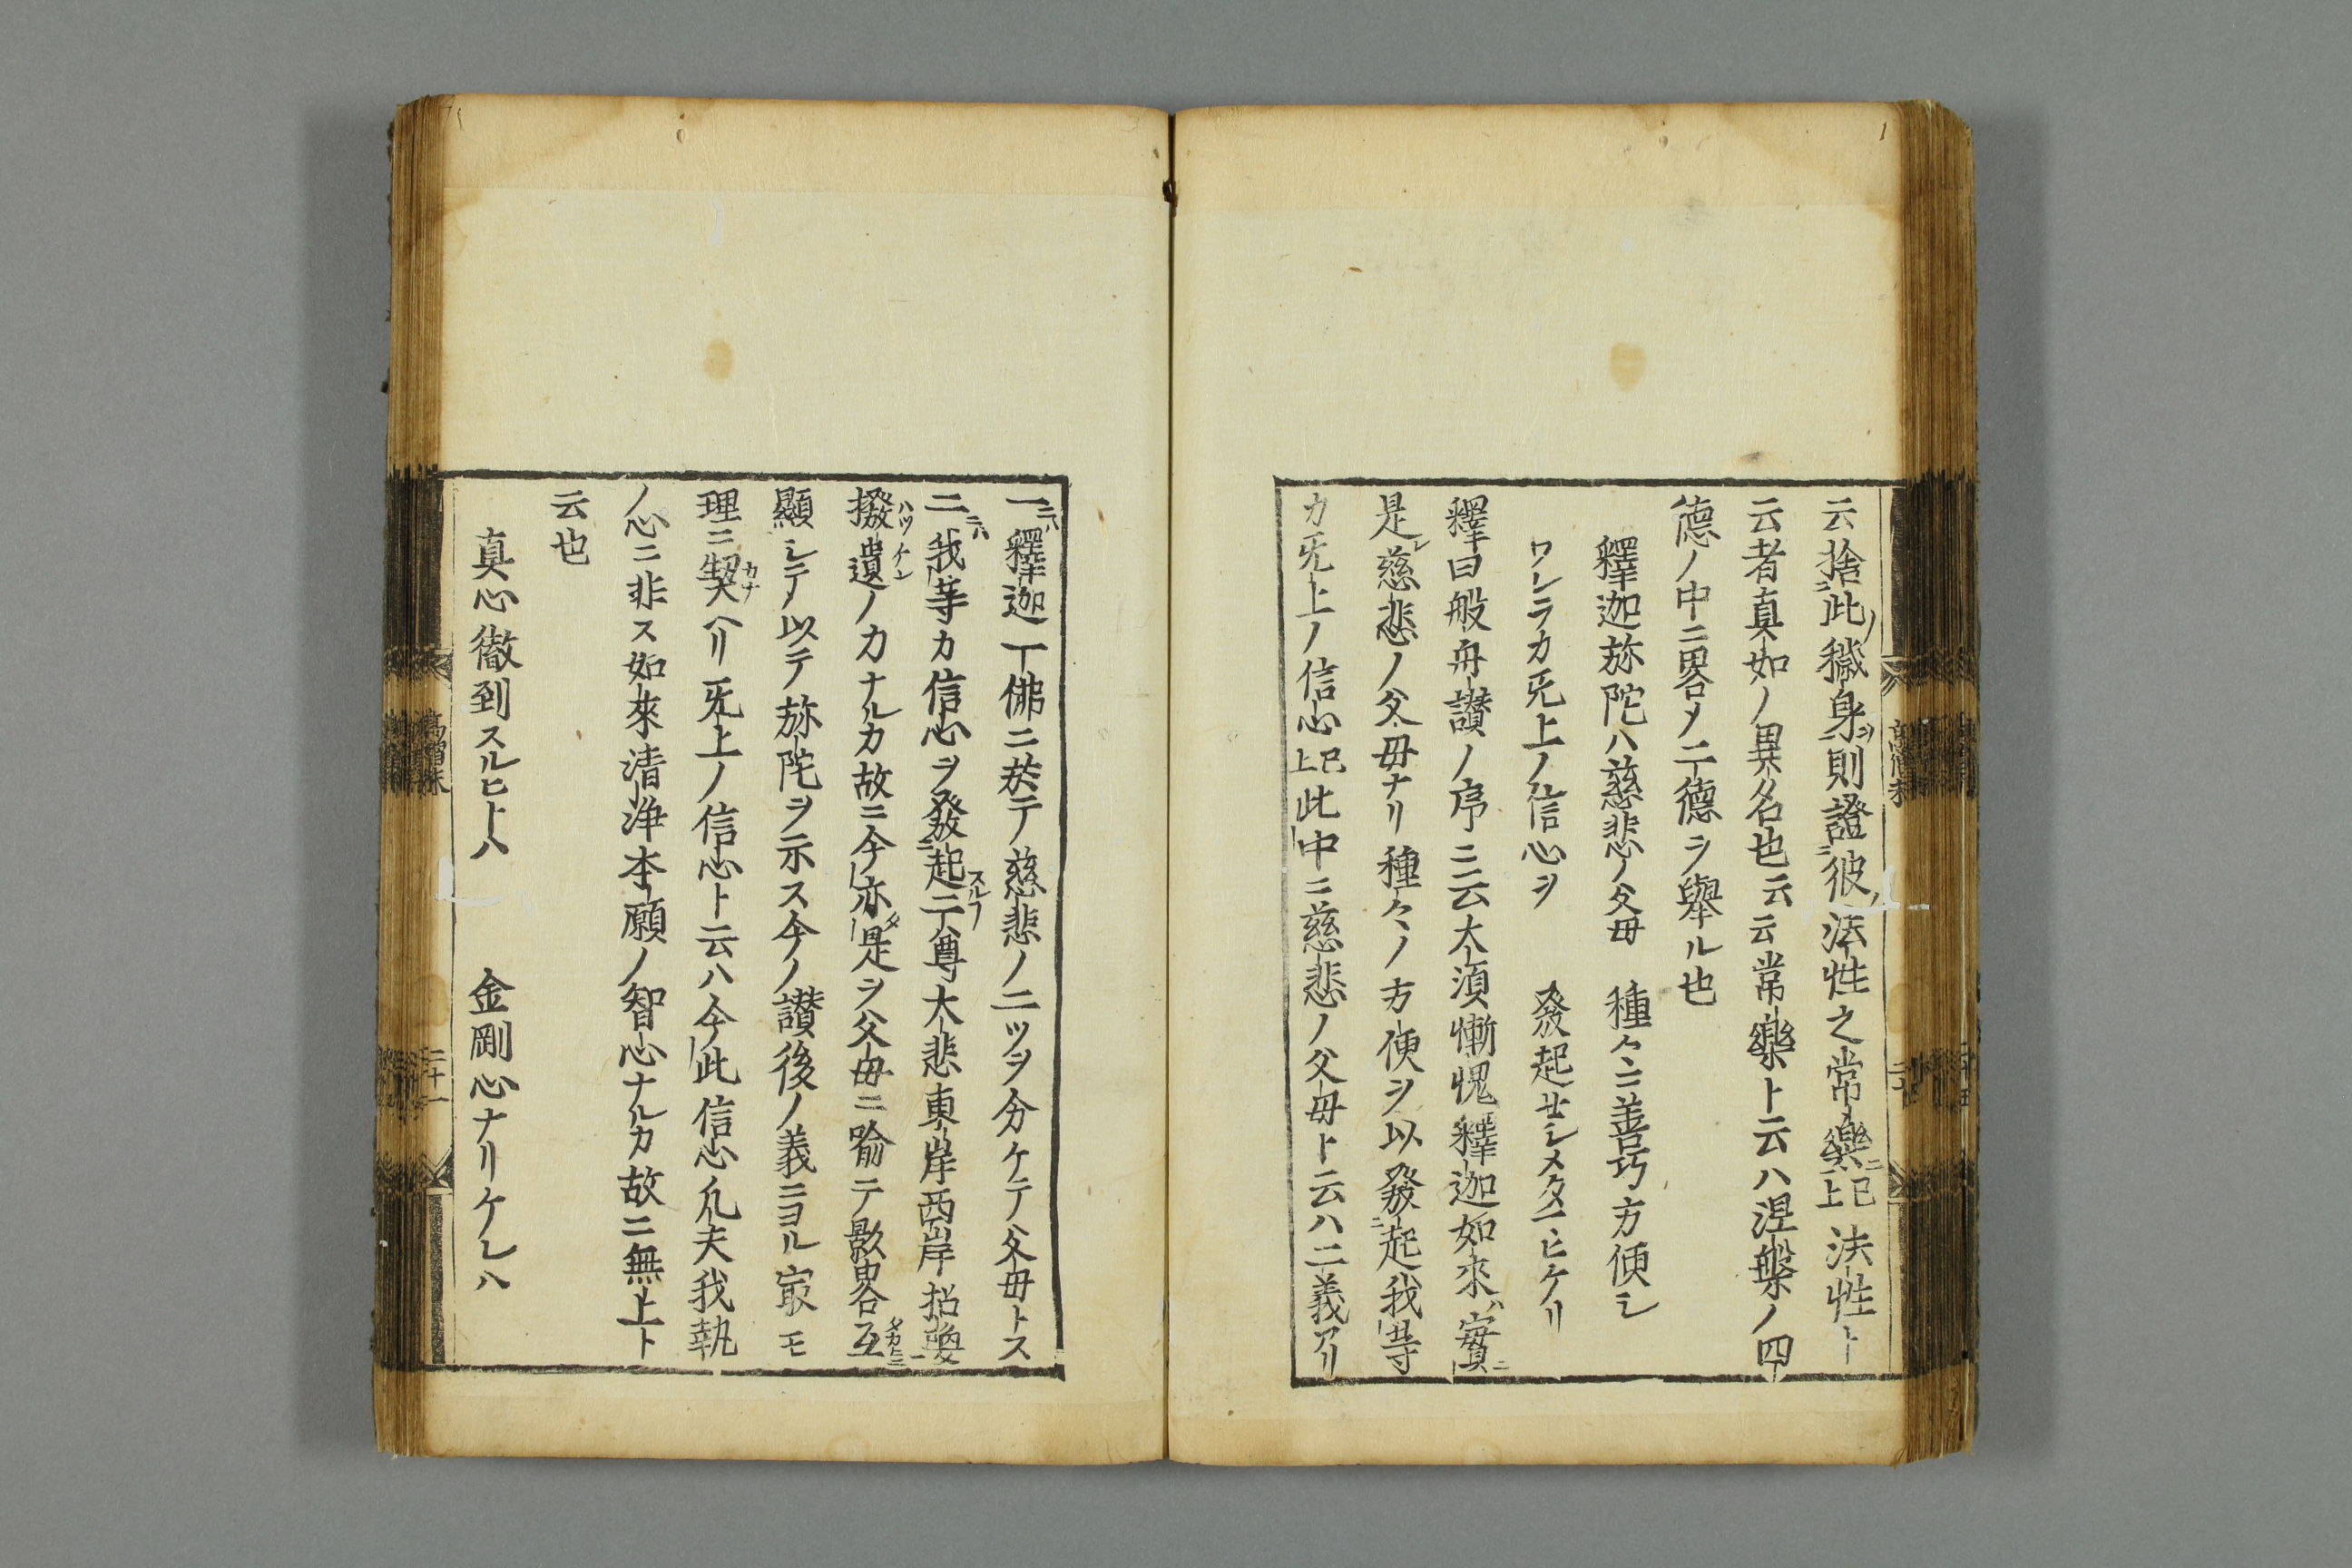 云捨此穢身則證彼法性之常樂已上法性ト
云者真如ノ異名也云云常樂ト云ハ涅槃ノ四
德ノ中ニ畧メ二德ヲ舉ル也
釋迦旀陀ハ慈悲ノ父母 種々ニ善巧方便シ
ワレラカ旡上ノ信心ヲ 發起せシメタマヒケリ
釋曰般舟讃ノ序ニ云大須慚愧釋迦如來ハ實ニ
是レ慈悲ノ父母ナリ種々ノ方便ヲ以發起我等
カ旡上ノ信心已上此中ニ慈悲ノ父母ト云ハ二義アリ
一ニハ釋迦一佛ニ於テ慈悲ノ二ツヲ分ケテ父母トス
二ニハ我等カ信心ヲ發起スルフ二尊大悲東岸西岸招喚
撥遺ノ力ナルカ故ニ今亦タ是ヲ父母ニ喻テ影畧互
顯シテ以テ旀陀ヲ示ス今ノ讃後ノ義ニヨル㝡モ
理ニ契ヘリ旡上ノ信心ト云ハ今此信心凡夫我執
ノ心ニ非ス如來清淨本願ノ智心ナルカ故ニ無上ト
云也
真心徹到スルヒトハ 金剛心ナリケレハ
二十一